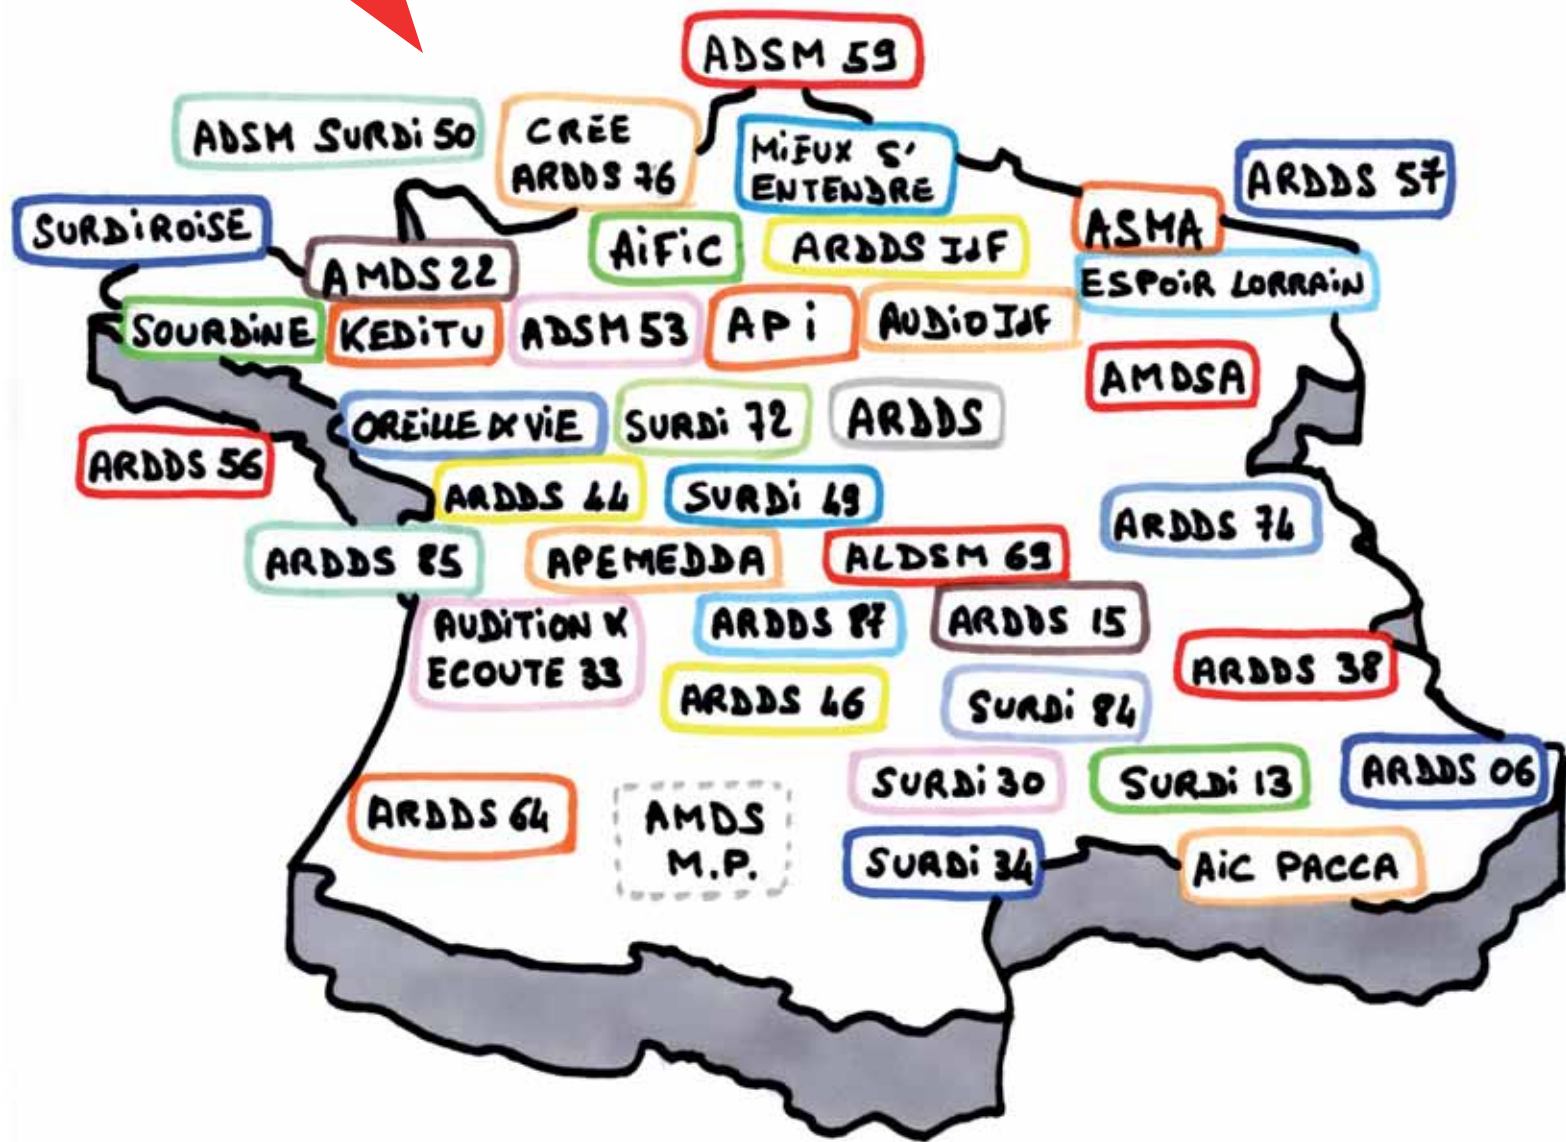 ADSM 59
ADSM SURDi 50
CRÉE
ARDDS 76
MiEUX S'
ENTENDRE
ARDDS 57
SURDiROiSE
AMDS 22
AiFiC
ARDDS IdF
ASMA
ESPOiR LORRAiN
SOURDiNE
KEDiTU
ADSM 53
APi
AUDiO IdF
AMDSA
OREiLLE & ViE
SURDi 72
ARDDS
ARDDS 56
ARDDS 44
SURDi 49
ARDDS 74
ARDDS 85
APEMEDDA
ALDSM 69
AUDiTiON &
ECOUTE 33
ARDDS 87
ARDDS 15
ARDDS 38
ARDDS 46
SURDi 84
SURDi 30
SURDi 13
ARDDS 06
ARDDS 64
AMDS
M.P.
SURDi 34
AiC PACCA